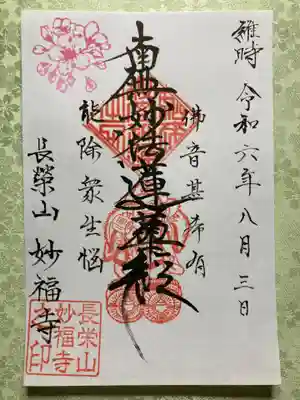 維時 令和六年八月三日
佛音甚希有
南無妙法蓮華経
能除衆生悩
長榮山 妙福寺
長栄山
妙福寺
印